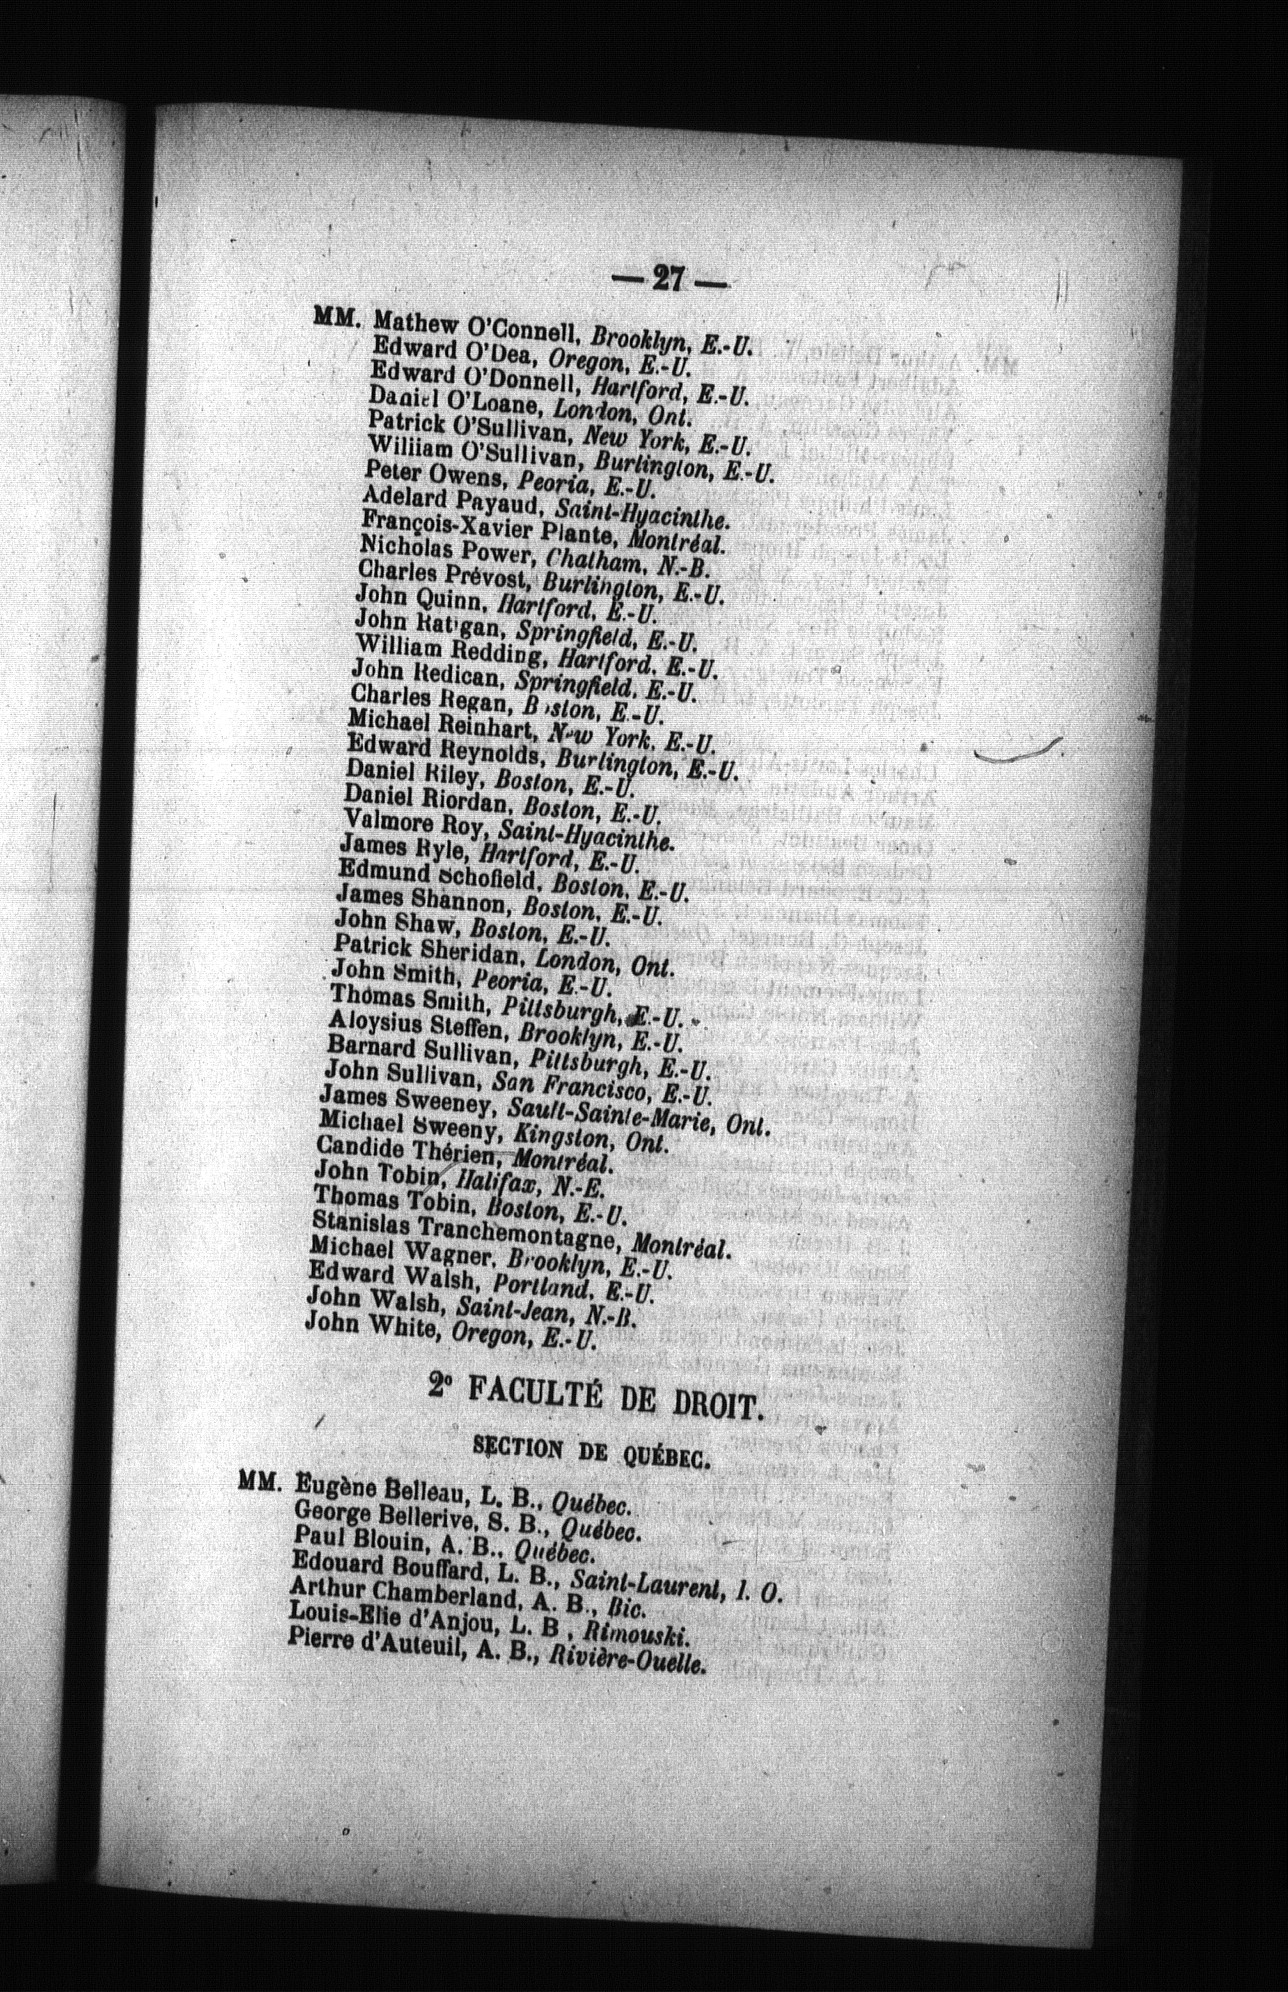 — 27 —
MM. Mathew O'Connell, Brooklyn, E.-U.
Edward O'Dea, Oregon, E.-U.
Edward O'Donnell, Hartford, E.-U.
Daniel O'Loane, London, Ont.
Patrick O'Sullivan, New York, E.-U.
William O'Sullivan, Burlington, E.-U.
Peter Owens, Peoria, E.-U.
Adelard Payaud, Saint-Hyacinthe.
François-Xavier Plante, Montréal.
Nicholas Power, Chatham, N.-B.
Charles Prévost, Burlington, E.-U.
John Quinn, Hartford, E.-U.
John Ratigan, Springfield, E.-U.
William Redding, Hartford, E.-U.
John Redican, Springfield, E.-U.
Charles Regan, Boston, E.-U.
Michael Reinhart, New York, E.-U.
Edward Reynolds, Burlington, E.-U.
Daniel Riley, Boston, E.-U.
Daniel Riordan, Boston, E.-U.
Valmore Roy, Saint-Hyacinthe.
James Ryle, Hartford, E.-U.
Edmund Schofield, Boston, E.-U.
James Shannon, Boston, E.-U.
John Shaw, Boston, E.-U.
Patrick Sheridan, London, Ont.
John Smith, Peoria, E.-U.
Thomas Smith, Pittsburgh, E.-U.
Aloysius Steffen, Brooklyn, E.-U.
Barnard Sullivan, Pittsburgh, E.-U.
John Sullivan, San Francisco, E.-U.
James Sweeney, Sault-Sainte-Marie, Ont.
Michael Sweeny, Kingston, Ont.
Candide Thérien, Montréal.
John Tobin, Halifax, N.-E.
Thomas Tobin, Boston, E.-U.
Stanislas Tranchemontagne, Montréal.
Michael Wagner, Brooklyn, E.-U.
Edward Walsh, Portland, E.-U.
John Walsh, Saint-Jean, N.-B.
John White, Oregon, E.-U.
2° FACULTÉ DE DROIT.
SECTION DE QUÉBEC.
MM. Eugène Belleau, L. B., Québec.
George Bellerive, S. B., Québec.
Paul Blouin, A. B., Québec.
Edouard Bouffard, L. B., Saint-Laurent, I. O.
Arthur Chamberland, A. B., Bic.
Louis-Elie d'Anjou, L. B, Rimouski.
Pierre d'Auteuil, A. B., Rivière-Ouelle.